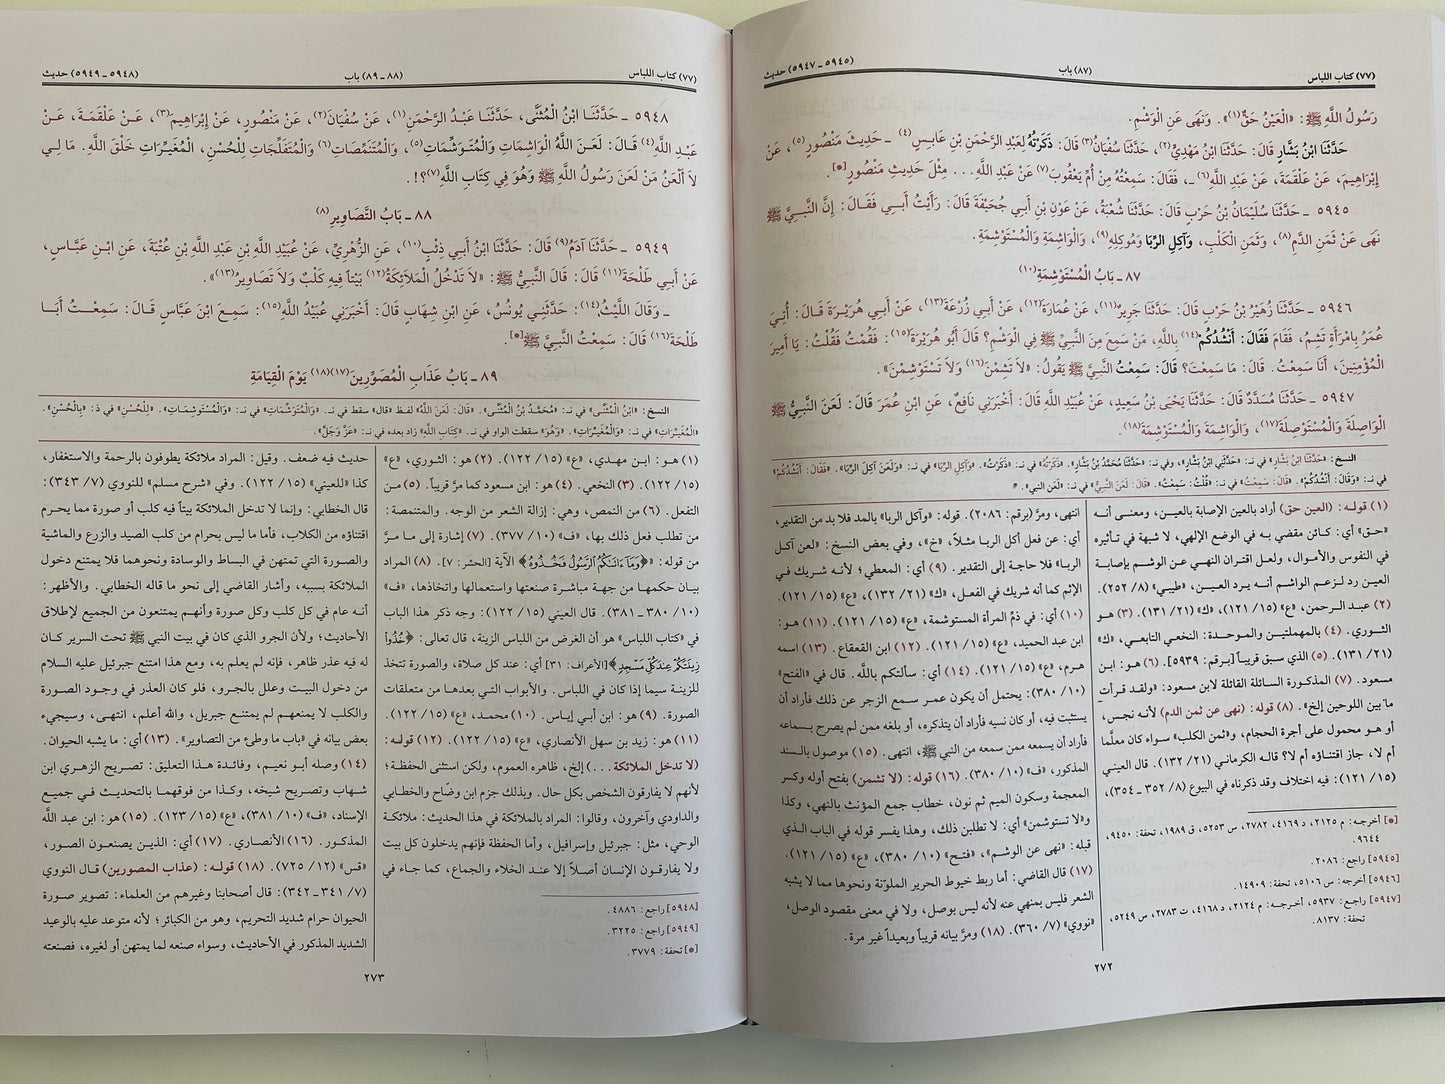 (٧٧) كتاب اللباس (٨٧) باب (٥٩٤٥ ـ ٥٩٤٧) حديث
رَسُولُ اللَّهِ ﷺ: «الْعَيْنُ حَقٌّ(١)». وَنَهَى عَنِ الْوَشْمِ.
حَدَّثَنَا ابْنُ بَشَّارٍ قَالَ: حَدَّثَنَا ابْنُ مَهْدِيٍّ(٢)، حَدَّثَنَا سُفْيَانُ(٣) قَالَ: ذَكَرْتُهُ لِعَبْدِ الرَّحْمَنِ بْنِ عَابِسٍ(٤) ـ حَدِيثَ مَنْصُورٍ(٥)، عَنْ
إِبْرَاهِيمَ، عَنْ عَلْقَمَةَ، عَنْ عَبْدِ اللَّهِ(٦) ـ، فَقَالَ: سَمِعْتُهُ مِنْ أُمِّ يَعْقُوبَ(٧) عَنْ عَبْدِ اللَّهِ... مِثْلَ حَدِيثِ مَنْصُورٍ[*].
٥٩٤٥ ـ حَدَّثَنَا سُلَيْمَانُ بْنُ حَرْبٍ قَالَ: حَدَّثَنَا شُعْبَةُ، عَنْ عَوْنِ بْنِ أَبِي جُحَيْفَةَ قَالَ: رَأَيْتُ أَبِي فَقَالَ: إِنَّ النَّبِيَّ ﷺ
نَهَى عَنْ ثَمَنِ الدَّمِ(٨)، وَثَمَنِ الْكَلْبِ، وَآكِلِ الرِّبَا وَمُوكِلِهِ(٩)، وَالْوَاشِمَةِ وَالْمُسْتَوْشِمَةِ.
٨٧ ـ بَابُ الْمُسْتَوْشِمَةِ(١٠)
٥٩٤٦ ـ حَدَّثَنَا زُهَيْرُ بْنُ حَرْبٍ قَالَ: حَدَّثَنَا جَرِيرٌ(١١)، عَنْ عُمَارَةَ(١٢)، عَنْ أَبِي زُرْعَةَ(١٣)، عَنْ أَبِي هُرَيْرَةَ قَالَ: أُتِيَ
عُمَرُ بِامْرَأَةٍ تَشِمُ، فَقَامَ فَقَالَ: أَنْشُدُكُمْ(١٤) بِاللَّهِ، مَنْ سَمِعَ مِنَ النَّبِيِّ ﷺ فِي الْوَشْمِ؟ قَالَ أَبُو هُرَيْرَةَ(١٥): فَقُمْتُ فَقُلْتُ: يَا أَمِيرَ
الْمُؤْمِنِينَ، أَنَا سَمِعْتُ. قَالَ: مَا سَمِعْتَ؟ قَالَ: سَمِعْتُ النَّبِيَّ ﷺ يَقُولُ: «لاَ تَشِمْنَ(١٦) وَلاَ تَسْتَوْشِمْنَ».
٥٩٤٧ ـ حَدَّثَنَا مُسَدَّدٌ قَالَ: حَدَّثَنَا يَحْيَى بْنُ سَعِيدٍ، عَنْ عُبَيْدِ اللَّهِ قَالَ: أَخْبَرَنِي نَافِعٌ، عَنِ ابْنِ عُمَرَ قَالَ: لَعَنَ النَّبِيُّ ﷺ
الْوَاصِلَةَ وَالْمُسْتَوْصِلَةَ(١٧)، وَالْوَاشِمَةَ وَالْمُسْتَوْشِمَةَ(١٨).
النسخ: «حَدَّثَنَا ابْنُ بَشَّارٍ» في نـ: «حَدَّثَنِي ابْنُ بَشَّارٍ»، وفي نـ: «حَدَّثَنَا مُحَمَّدُ بْنُ بَشَّارٍ». «ذَكَرْتُهُ» في نـ: «ذَكَرْتُ». «وَآكِلِ الرِّبَا» في نـ: «وَلَعَنَ آكِلَ الرِّبَا». «فَقَالَ: أَنْشُدُكُمْ»
في نـ: «وَقَالَ: أَنْشُدُكُمْ». «قَالَ: سَمِعْتُ» في نـ: «قُلْتُ: سَمِعْتُ». «قَالَ: لَعَنَ النَّبِيُّ» في نـ: «لَعَنَ النبي».
(١) قوله: (العين حق) أراد بالعين الإصابة بالعين، ومعنى أنه
«حق» أي: كائن مقضي به في الوضع الإلهي، لا شبهة في تأثيره
في النفوس والأموال، ولعل اقتران النهي عن الوشم بإصابة
العين رد لزعم الواشم أنه يرد العين، «طيبي» (٨/ ٢٥٢).
(٢) عبد الرحمن، «ع» (١٥/ ١٢١)، «ك» (٢١/ ١٣١). (٣) هو
الثوري. (٤) بالمهملتين والموحدة: النخعي التابعي، «ك»
(٢١/ ١٣١). (٥) الذي سبق قريباً [برقم: ٥٩٣٩]. (٦) هو: ابن
مسعود. (٧) المذكورة السائلة القائلة لابن مسعود: «ولقد قرأت
ما بين اللوحين إلخ». (٨) قوله: (نهى عن ثمن الدم) لأنه نجس،
أو هو محمول على أجرة الحجام، و«ثمن الكلب» سواء كان معلَّما
أم لا، جاز اقتناؤه أم لا؟ قاله الكرماني (٢١/ ١٣٢). قال العيني
(١٥/ ١٢١): فيه اختلاف وقد ذكرناه في البيوع (٨/ ٣٥٢ ـ ٣٥٤)،
[*] أخرجه: م ٢١٢٥، د ٤١٦٩، ت ٢٧٨٢، س ٥٢٥٣، ق ١٩٨٩، تحفة: ٩٤٥٠،
٩٦٤٤.
[٥٩٤٥] راجع: ٢٠٨٦.
[٥٩٤٦] أخرجه: س ٥١٠٦، تحفة: ١٤٩٠٩.
[٥٩٤٧] راجع: ٥٩٣٧، أخرجه: م ٢١٢٤، د ٤١٦٨، ت ٢٧٨٣، س ٥٢٤٩،
تحفة: ٨١٣٧.
انتهى، ومرَّ (برقم: ٢٠٨٦). قوله: «وآكل الربا» بالمد فلا بد من التقدير،
أي: عن فعل آكل الربا مثلاً، «خ»، وفي بعض النسخ: «لعن آكل
الربا» فلا حاجة إلى التقدير. (٩) أي: المعطي؛ لأنه شريك في
الإثم كما أنه شريك في الفعل، «ك» (٢١/ ١٣٢)، «ع» (١٥/ ١٢١).
(١٠) أي: في ذمِّ المرأة المستوشمة، «ع» (١٥/ ١٢١). (١١) هو:
ابن عبد الحميد، «ع» (١٥/ ١٢١). (١٢) ابن القعقاع. (١٣) اسمه
هرم، «ع» (١٥/ ١٢١). (١٤) أي: سألتكم بالله. قال في «الفتح»
(١٠/ ٣٨٠): يحتمل أن يكون عمر سمع الزجر عن ذلك فأراد أن
يستثبت فيه، أو كان نسيه فأراد أن يتذكره، أو بلغه ممن لم يصرح بسماعه
فأراد أن يسمعه ممن سمعه من النبي ﷺ، انتهى. (١٥) موصول بالسند
المذكور، «ف» (١٠/ ٣٨٠). (١٦) قوله: (لا تشمن) بفتح أوله وكسر
المعجمة وسكون الميم ثم نون، خطاب جمع المؤنث بالنهي، وكذا
و«لا تستوشمن» أي: لا تطلبن ذلك، وهذا يفسر قوله في الباب الذي
قبله: «نهى عن الوشم»، «فتح» (١٠/ ٣٨٠)، «ع» (١٥/ ١٢١).
(١٧) قال القاضي: أما ربط خيوط الحرير الملوّنة ونحوها مما لا يشبه
الشعر فليس بمنهي عنه لأنه ليس بوصل، ولا في معنى مقصود الوصل،
«نووي» (٧/ ٣٦٠). (١٨) ومرَّ بيانه قريباً وبعيداً غير مرة.
٢٧٢
(٧٧) كتاب اللباس (٨٨ ـ ٨٩) باب (٥٩٤٨ ـ ٥٩٤٩) حديث
٥٩٤٨ ـ حَدَّثَنَا ابْنُ الْمُثَنَّى، حَدَّثَنَا عَبْدُ الرَّحْمَنِ(١)، عَنْ سُفْيَانَ(٢)، عَنْ مَنْصُورٍ، عَنْ إِبْرَاهِيمَ(٣)، عَنْ عَلْقَمَةَ، عَنْ
عَبْدِ اللَّهِ(٤) قَالَ: لَعَنَ اللَّهُ الْوَاشِمَاتِ وَالْمُتَوَشِّمَاتِ(٥)، وَالْمُتَنَمِّصَاتِ(٦) وَالْمُتَفَلِّجَاتِ لِلْحُسْنِ، الْمُغَيِّرَاتِ خَلْقَ اللَّهِ. مَا لِي
لاَ أَلْعَنُ مَنْ لَعَنَ رَسُولُ اللَّهِ ﷺ وَهُوَ فِي كِتَابِ اللَّهِ(٧)؟!.
٨٨ ـ بَابُ التَّصَاوِيرِ(٨)
٥٩٤٩ ـ حَدَّثَنَا آدَمُ(٩) قَالَ: حَدَّثَنَا ابْنُ أَبِي ذِئْبٍ(١٠)، عَنِ الزُّهْرِيِّ، عَنْ عُبَيْدِ اللَّهِ بْنِ عَبْدِ اللَّهِ بْنِ عُتْبَةَ، عَنِ ابْنِ عَبَّاسٍ،
عَنْ أَبِي طَلْحَةَ(١١) قَالَ: قَالَ النَّبِيُّ ﷺ: «لاَ تَدْخُلُ الْمَلاَئِكَةُ(١٢) بَيْتاً فِيهِ كَلْبٌ وَلاَ تَصَاوِيرُ(١٣)».
ـ وَقَالَ اللَّيْثُ(١٤): حَدَّثَنِي يُونُسُ، عَنِ ابْنِ شِهَابٍ قَالَ: أَخْبَرَنِي عُبَيْدُ اللَّهِ(١٥): سَمِعَ ابْنَ عَبَّاسٍ قَالَ: سَمِعْتُ أَبَا
طَلْحَةَ(١٦) قَالَ: سَمِعْتُ النَّبِيَّ ﷺ[*].
٨٩ ـ بَابُ عَذَابِ الْمُصَوِّرِينَ(١٧)(١٨) يَوْمَ الْقِيَامَةِ
النسخ: «ابْنُ الْمُثَنَّى» في نـ: «مُحَمَّدُ بْنُ الْمُثَنَّى». «قَالَ: لَعَنَ اللَّهُ» لفظ «قال» سقط في نـ. «وَالْمُتَوَشِّمَاتِ» في نـ: «وَالْمُسْتَوشِمَاتِ». «لِلْحُسْنِ» في ذ: «بِالْحُسْنِ».
«الْمُغَيِّرَاتِ» في نـ: «وَالْمُغَيِّرَاتِ». «وَهُوَ» سقطت الواو في نـ. «كِتَابِ اللَّهِ» زاد بعده في نـ: «عَزَّ وَجَلَّ».
(١) هو: ابن مهدي، «ع» (١٥/ ١٢٢). (٢) هو: الثوري، «ع»
(١٥/ ١٢٢). (٣) النخعي. (٤) هو: ابن مسعود كما مرَّ قريباً. (٥) من
التفعل. (٦) من النمص، وهي: إزالة الشعر من الوجه. والمتنمصة:
من تطلب فعل ذلك بها، «ف» (١٠/ ٣٧٧). (٧) إشارة إلى ما مرَّ
من قوله: ﴿وَمَآ ءَاتَىٰكُمُ ٱلرَّسُولُ فَخُذُوهُ﴾ الآية [الحشر: ٧]. (٨) المراد
بيان حكمها من جهة مباشرة صنعتها واستعمالها واتخاذها، «ف»
(١٠/ ٣٨٠ ـ ٣٨١). قال العيني (١٥/ ١٢٢): وجه ذكر هذا الباب
في «كتاب اللباس» هو أن الغرض من اللباس الزينة، قال تعالى: ﴿خُذُواْ
زِينَتَكُمْ عِندَ كُلِّ مَسْجِدٍ﴾ [الأعراف: ٣١] أي: عند كل صلاة، والصورة تتخذ
للزينة سيما إذا كان في اللباس. والأبواب التي بعدها من متعلقات
الصورة. (٩) هو: ابن أبي إياس. (١٠) محمد، «ع» (١٥/ ١٢٢).
(١١) هو: زيد بن سهل الأنصاري، «ع» (١٥/ ١٢٢). (١٢) قوله:
(لا تدخل الملائكة...) إلخ، ظاهره العموم، ولكن استثني الحفظة؛
لأنهم لا يفارقون الشخص بكل حال. وبذلك جزم ابن وضَّاح والخطابي
والداودي وآخرون، وقالوا: المراد بالملائكة في هذا الحديث: ملائكة
الوحي، مثل: جبرئيل وإسرافيل، وأما الحفظة فإنهم يدخلون كل بيت
ولا يفارقون الإنسان أصلاً إلا عند الخلاء والجماع، كما جاء في
[٥٩٤٨] راجع: ٤٨٨٦.
[٥٩٤٩] راجع: ٣٢٢٥.
[*] تحفة: ٣٧٧٩.
حديث فيه ضعف. وقيل: المراد ملائكة يطوفون بالرحمة والاستغفار،
كذا «للعيني» (١٥/ ١٢٢). وفي «شرح مسلم» للنووي (٧/ ٣٤٣):
قال الخطابي: وإنما لا تدخل الملائكة بيتاً فيه كلب أو صورة مما يحرم
اقتناؤه من الكلاب، فأما ما ليس بحرام من كلب الصيد والزرع والماشية
والصورة التي تمتهن في البساط والوسادة ونحوهما فلا يمتنع دخول
الملائكة بسببه، وأشار القاضي إلى نحو ما قاله الخطابي. والأظهر:
أنه عام في كل كلب وكل صورة وأنهم يمتنعون من الجميع لإطلاق
الأحاديث؛ ولأن الجرو الذي كان في بيت النبي ﷺ تحت السرير كان
له فيه عذر ظاهر، فإنه لم يعلم به، ومع هذا امتنع جبرئيل عليه السلام
من دخول البيت وعلل بالجرو، فلو كان العذر في وجود الصورة
والكلب لا يمنعهم لم يمتنع جبريل، والله أعلم، انتهى، وسيجيء
بعض بيانه في «باب ما وطئ من التصاوير». (١٣) أي: ما يشبه الحيوان.
(١٤) وصله أبو نعيم، وفائدة هذا التعليق: تصريح الزهري ابن
شهاب وتصريح شيخه، وكذا من فوقهما بالتحديث في جميع
الإسناد، «ف» (١٠/ ٣٨١)، «ع» (١٥/ ١٢٣). (١٥) هو: ابن عبد اللَّه
المذكور. (١٦) الأنصاري. (١٧) أي: الذين يصنعون الصور،
«قس» (١٢/ ٧٢٥). (١٨) قوله: (عذاب المصورين) قال النووي
(٧/ ٣٤١ ـ ٣٤٢): قال أصحابنا وغيرهم من العلماء: تصوير صورة
الحيوان حرام شديد التحريم، وهو من الكبائر؛ لأنه متوعد عليه بالوعيد
الشديد المذكور في الأحاديث، وسواء صنعه لما يمتهن أو لغيره، فصنعته
٢٧٣